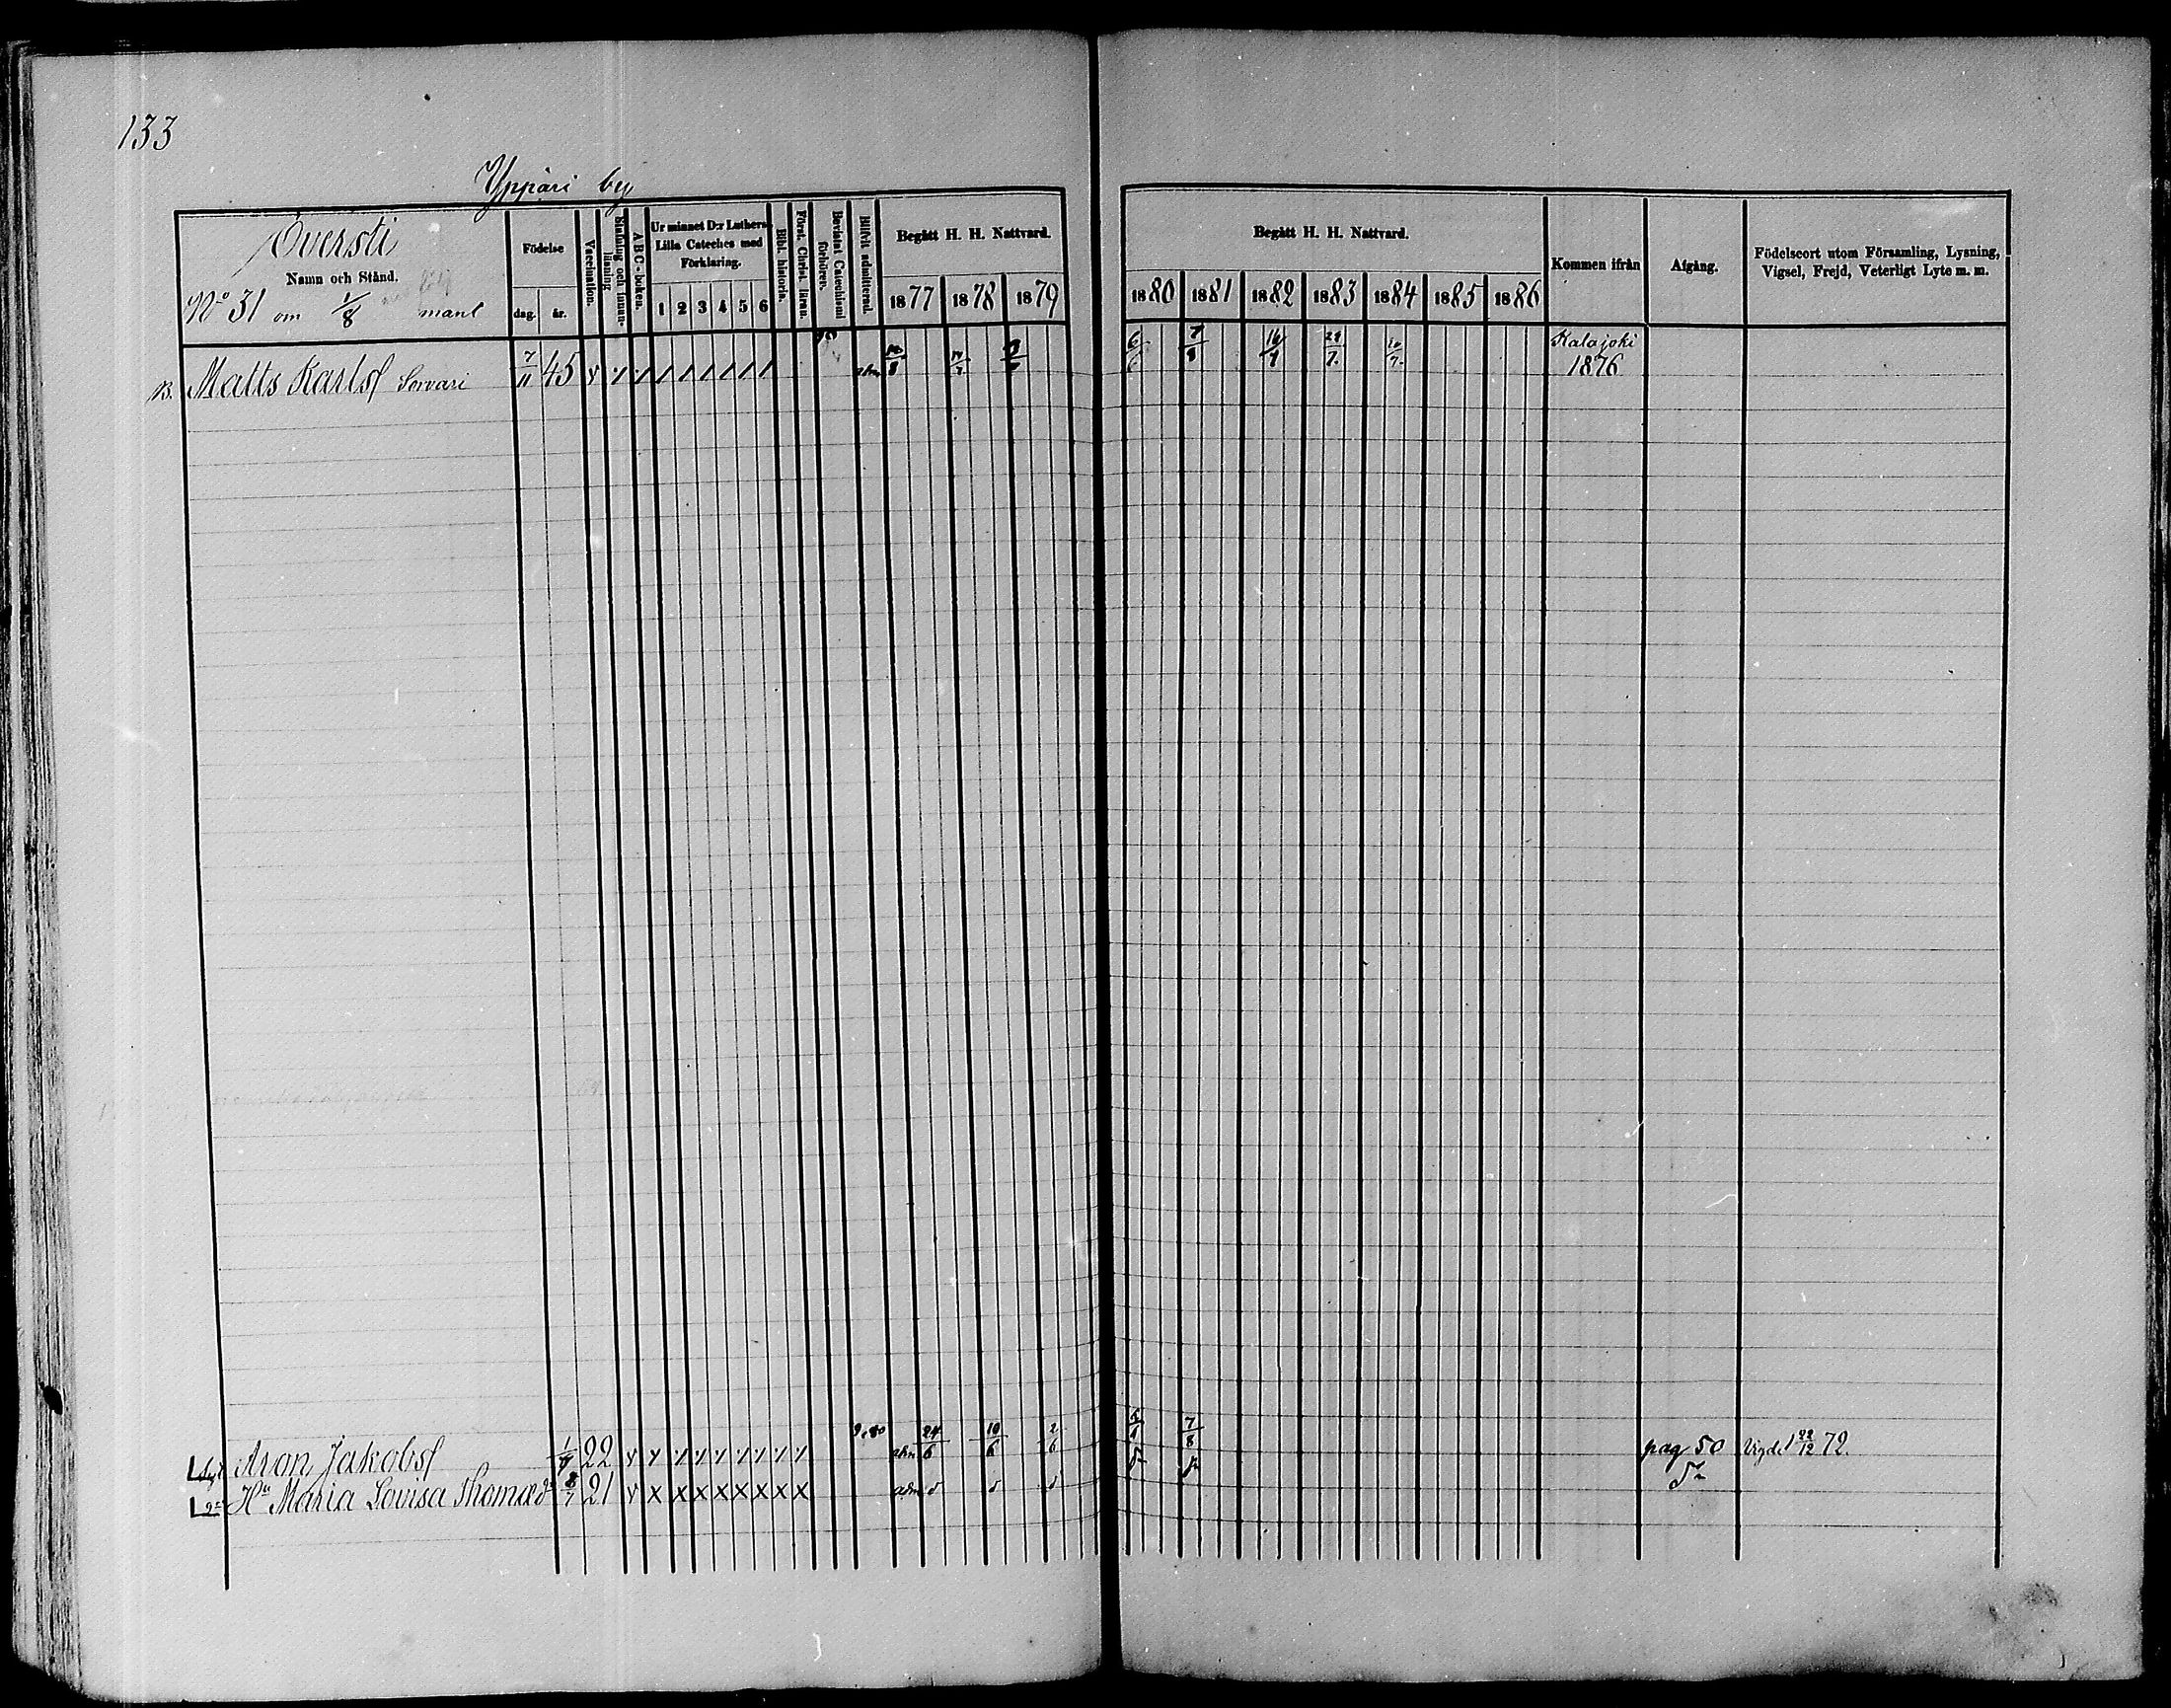 133
Yppäri by
Översti
Namn och Stånd.
No 31 om 1/8 mantl
Födelse
dag. år.
Vaccination.
Stafning och innan-läsning
ABC-boken.
Ur minnet D:r Luthers Lilla Cateches med Förklaring.
1 2 3 4 5 6
Bibl. historia.
Först. Christ. lära.
Bevistat Catechismi förhören.
Blifvit admitterad.
Begått H. H. Nattvard.
1877 1878 1879
Begått H. H. Nattvard.
1880 1881 1882 1883 1884 1885 1886
Kommen ifrån
Afgång.
Födelseort utom Församling, Lysning, Vigsel, Frejd, Veterligt Lyte m. m.
B. Matts Karlsf Sorvari 7/11 45 Kalajoki 1876
Aron Jakobsf 22 24/6 10/6 2/6 7/8 pag 50 Vigde 22/12 72.
Hu Maria Lovisa Thomæd 8/7 21 adm